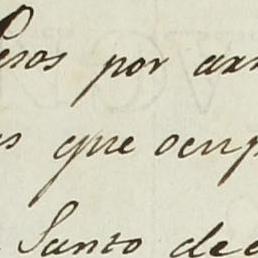 Pesos por arr
s que ocup
Santo de